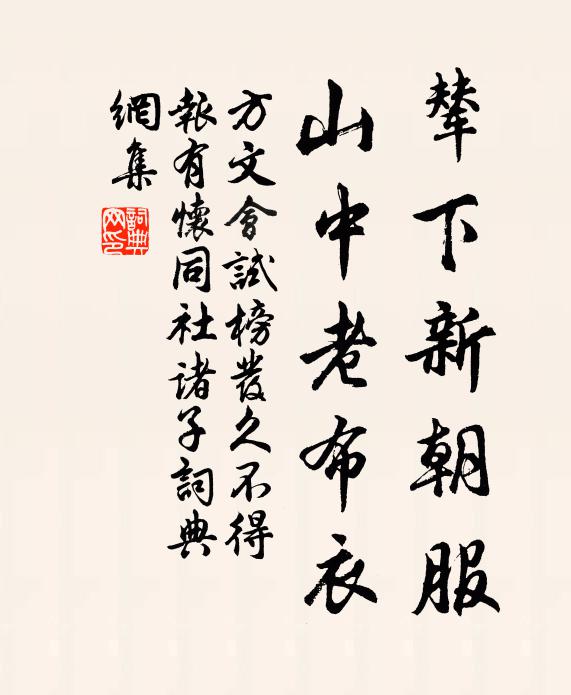 輦下新朝服
山中老布衣
方文會試榜發久不得
報有懷同社諸子詞典
網集
詞典
网印